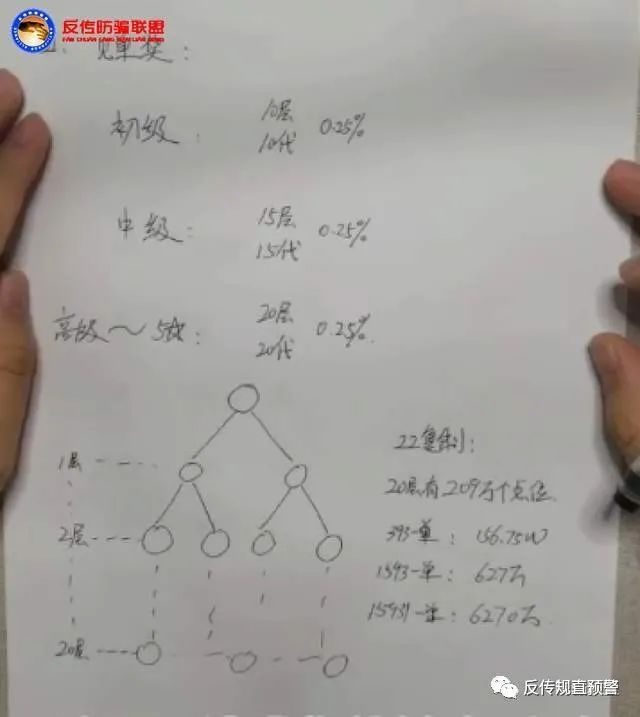 反传防骗联盟
FAN CHUAN FANG PIAN LIAN MENG
见单奖:
初级: 10层 10代 0.25%
中级: 15层 15代 0.25%
高级~5级: 20层 20代 0.25%
22复制:
1层
20层有209万个点位
2层
393一单: 156.75W
1593一单: 627万
15931一单: 6270万
20层
反传规直预警